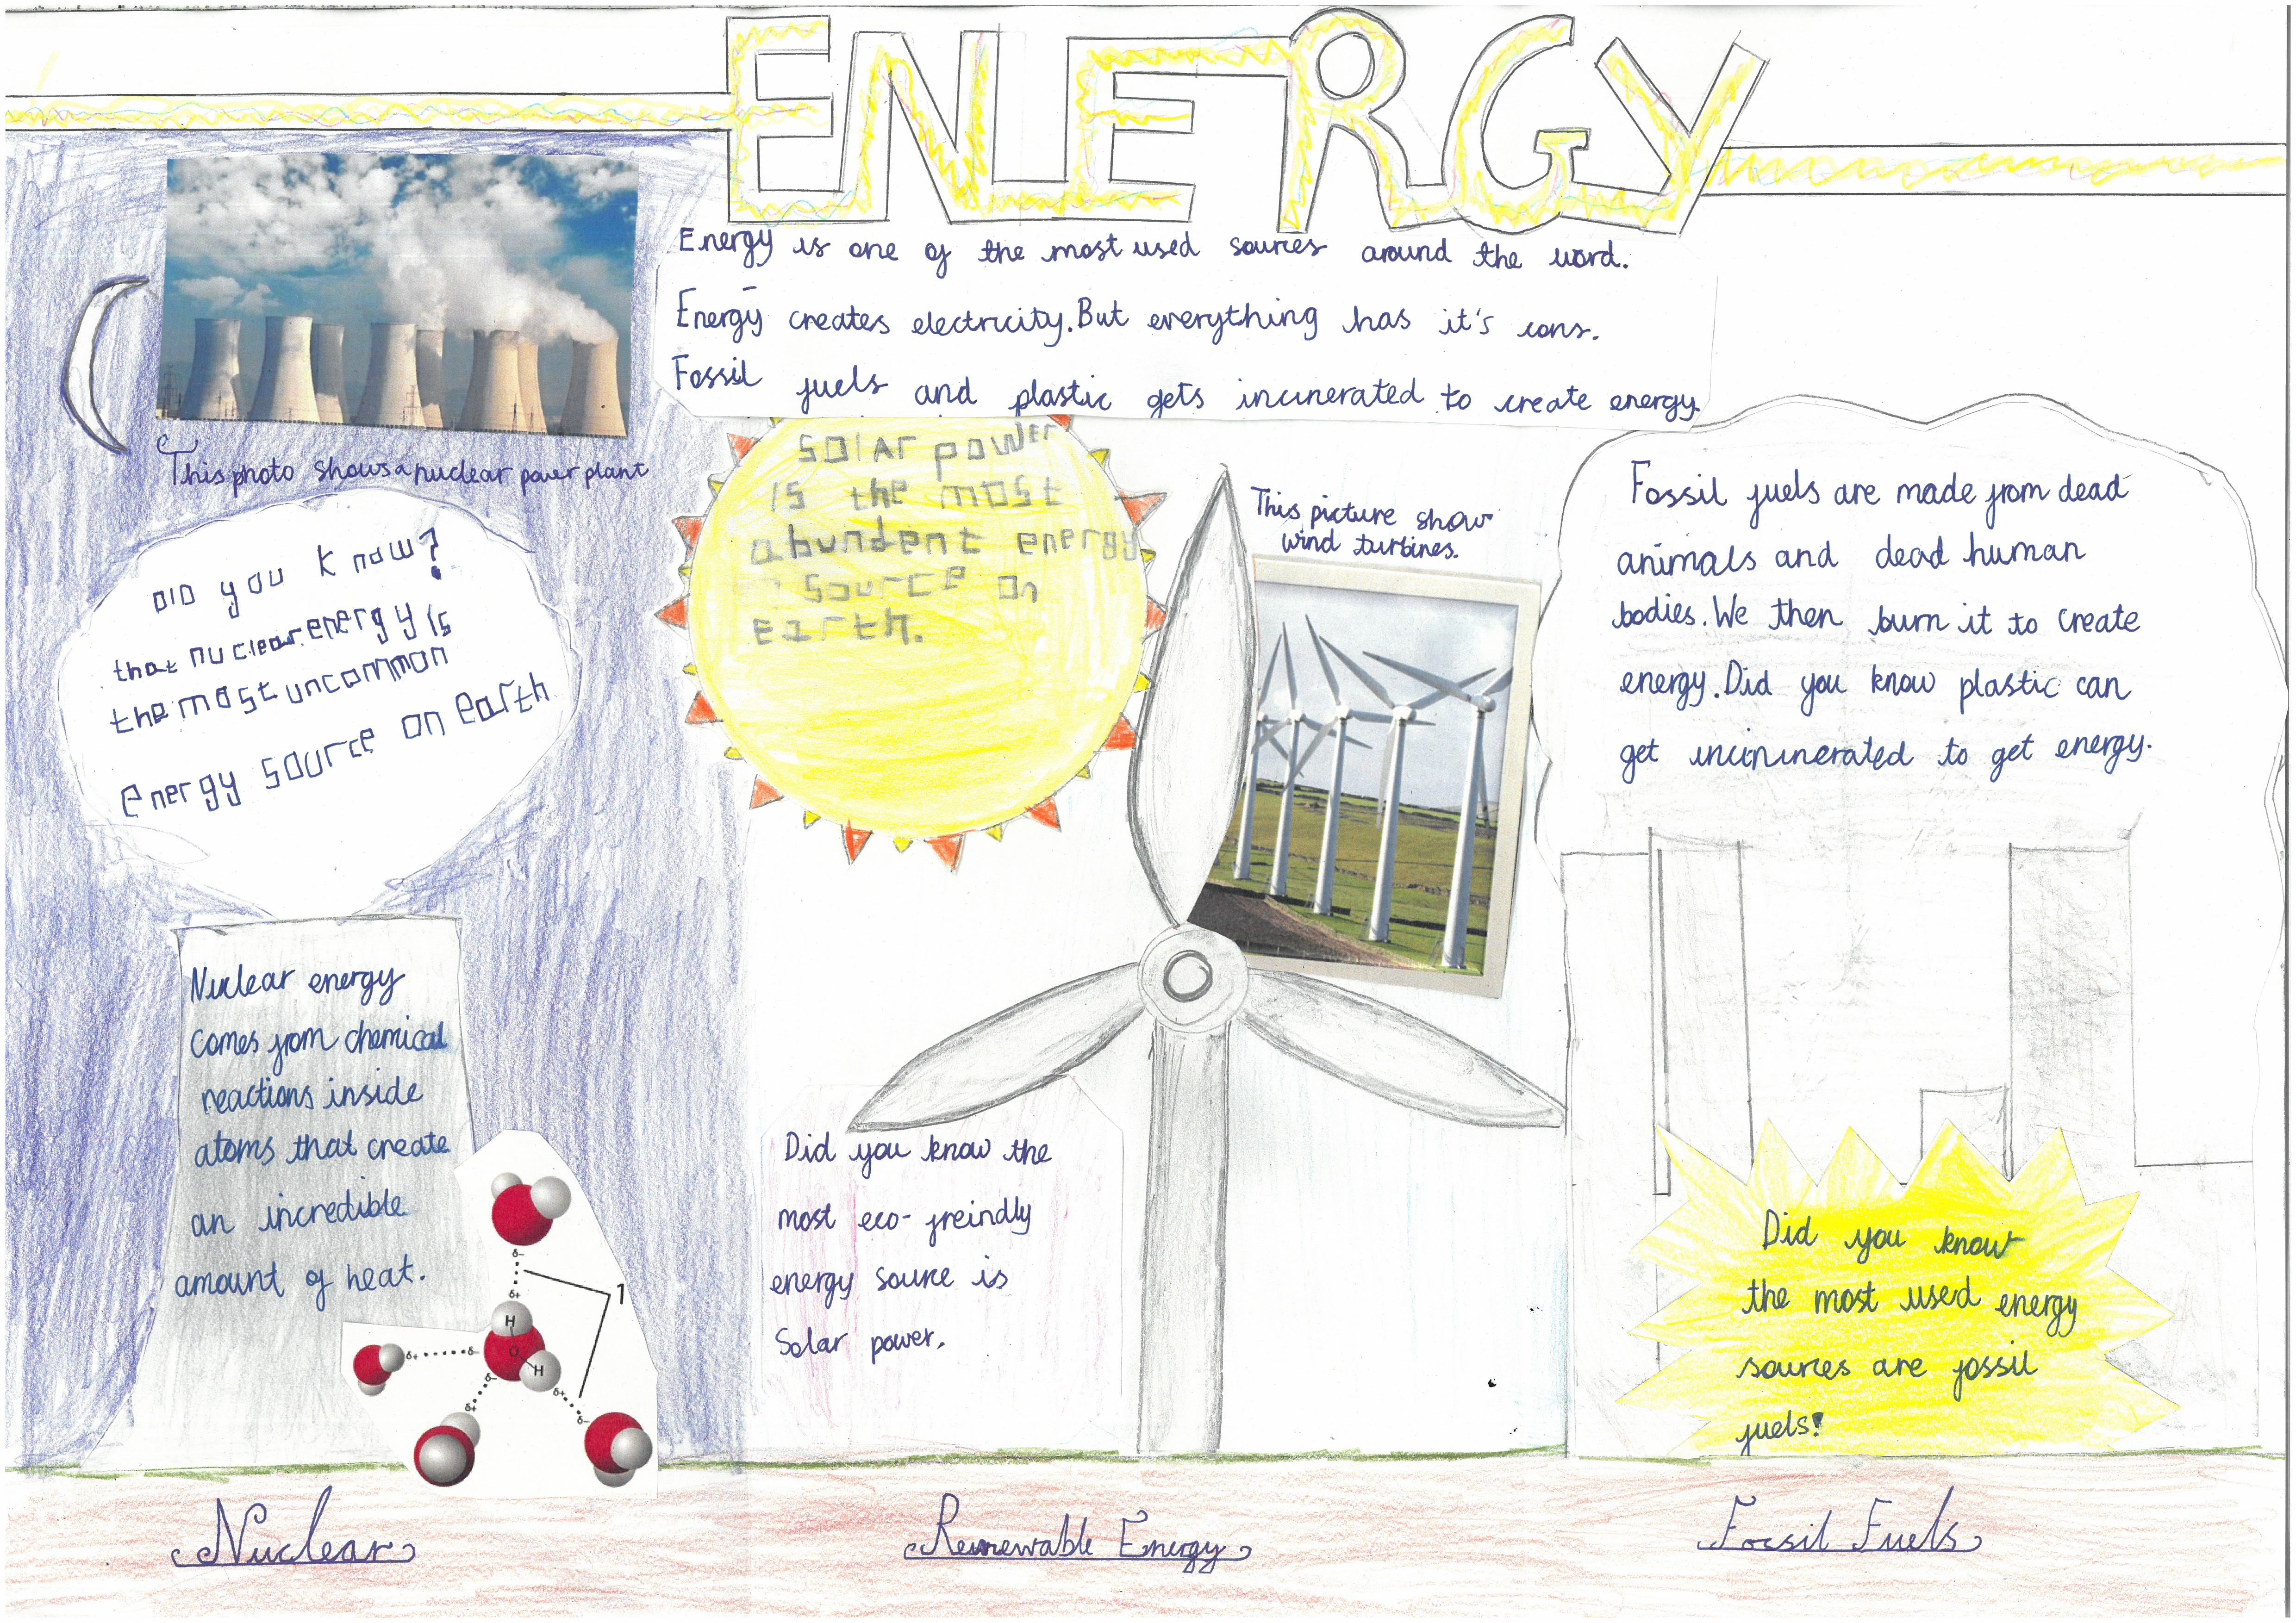 ENERGY
Energy is one of the most used sources around the word.
Energy creates electricity. But everything has it's cons.
Fossil fuels and plastic gets incinerated to create energy.
This photo shows a nuclear power plant
DID you know?
that nuclear energy is
the most uncommon
energy source on earth
Nuclear energy
comes from chemical
reactions inside
atoms that create
an incredible
amount of heat.
δ-
δ+
1
H
O
H
δ+
δ-
δ-
δ+
δ+
δ-
Nuclear
Solar power
is the most
abundent energy
source on
Earth.
This picture show
wind turbines.
Did you know the
most eco-freindly
energy source is
Solar power.
Renewable Energy
Fossil fuels are made from dead
animals and dead human
bodies. We then burn it to create
energy. Did you know plastic can
get incininerated to get energy.
Did you know
the most used energy
sources are fossil
fuels!
Fossil Fuels